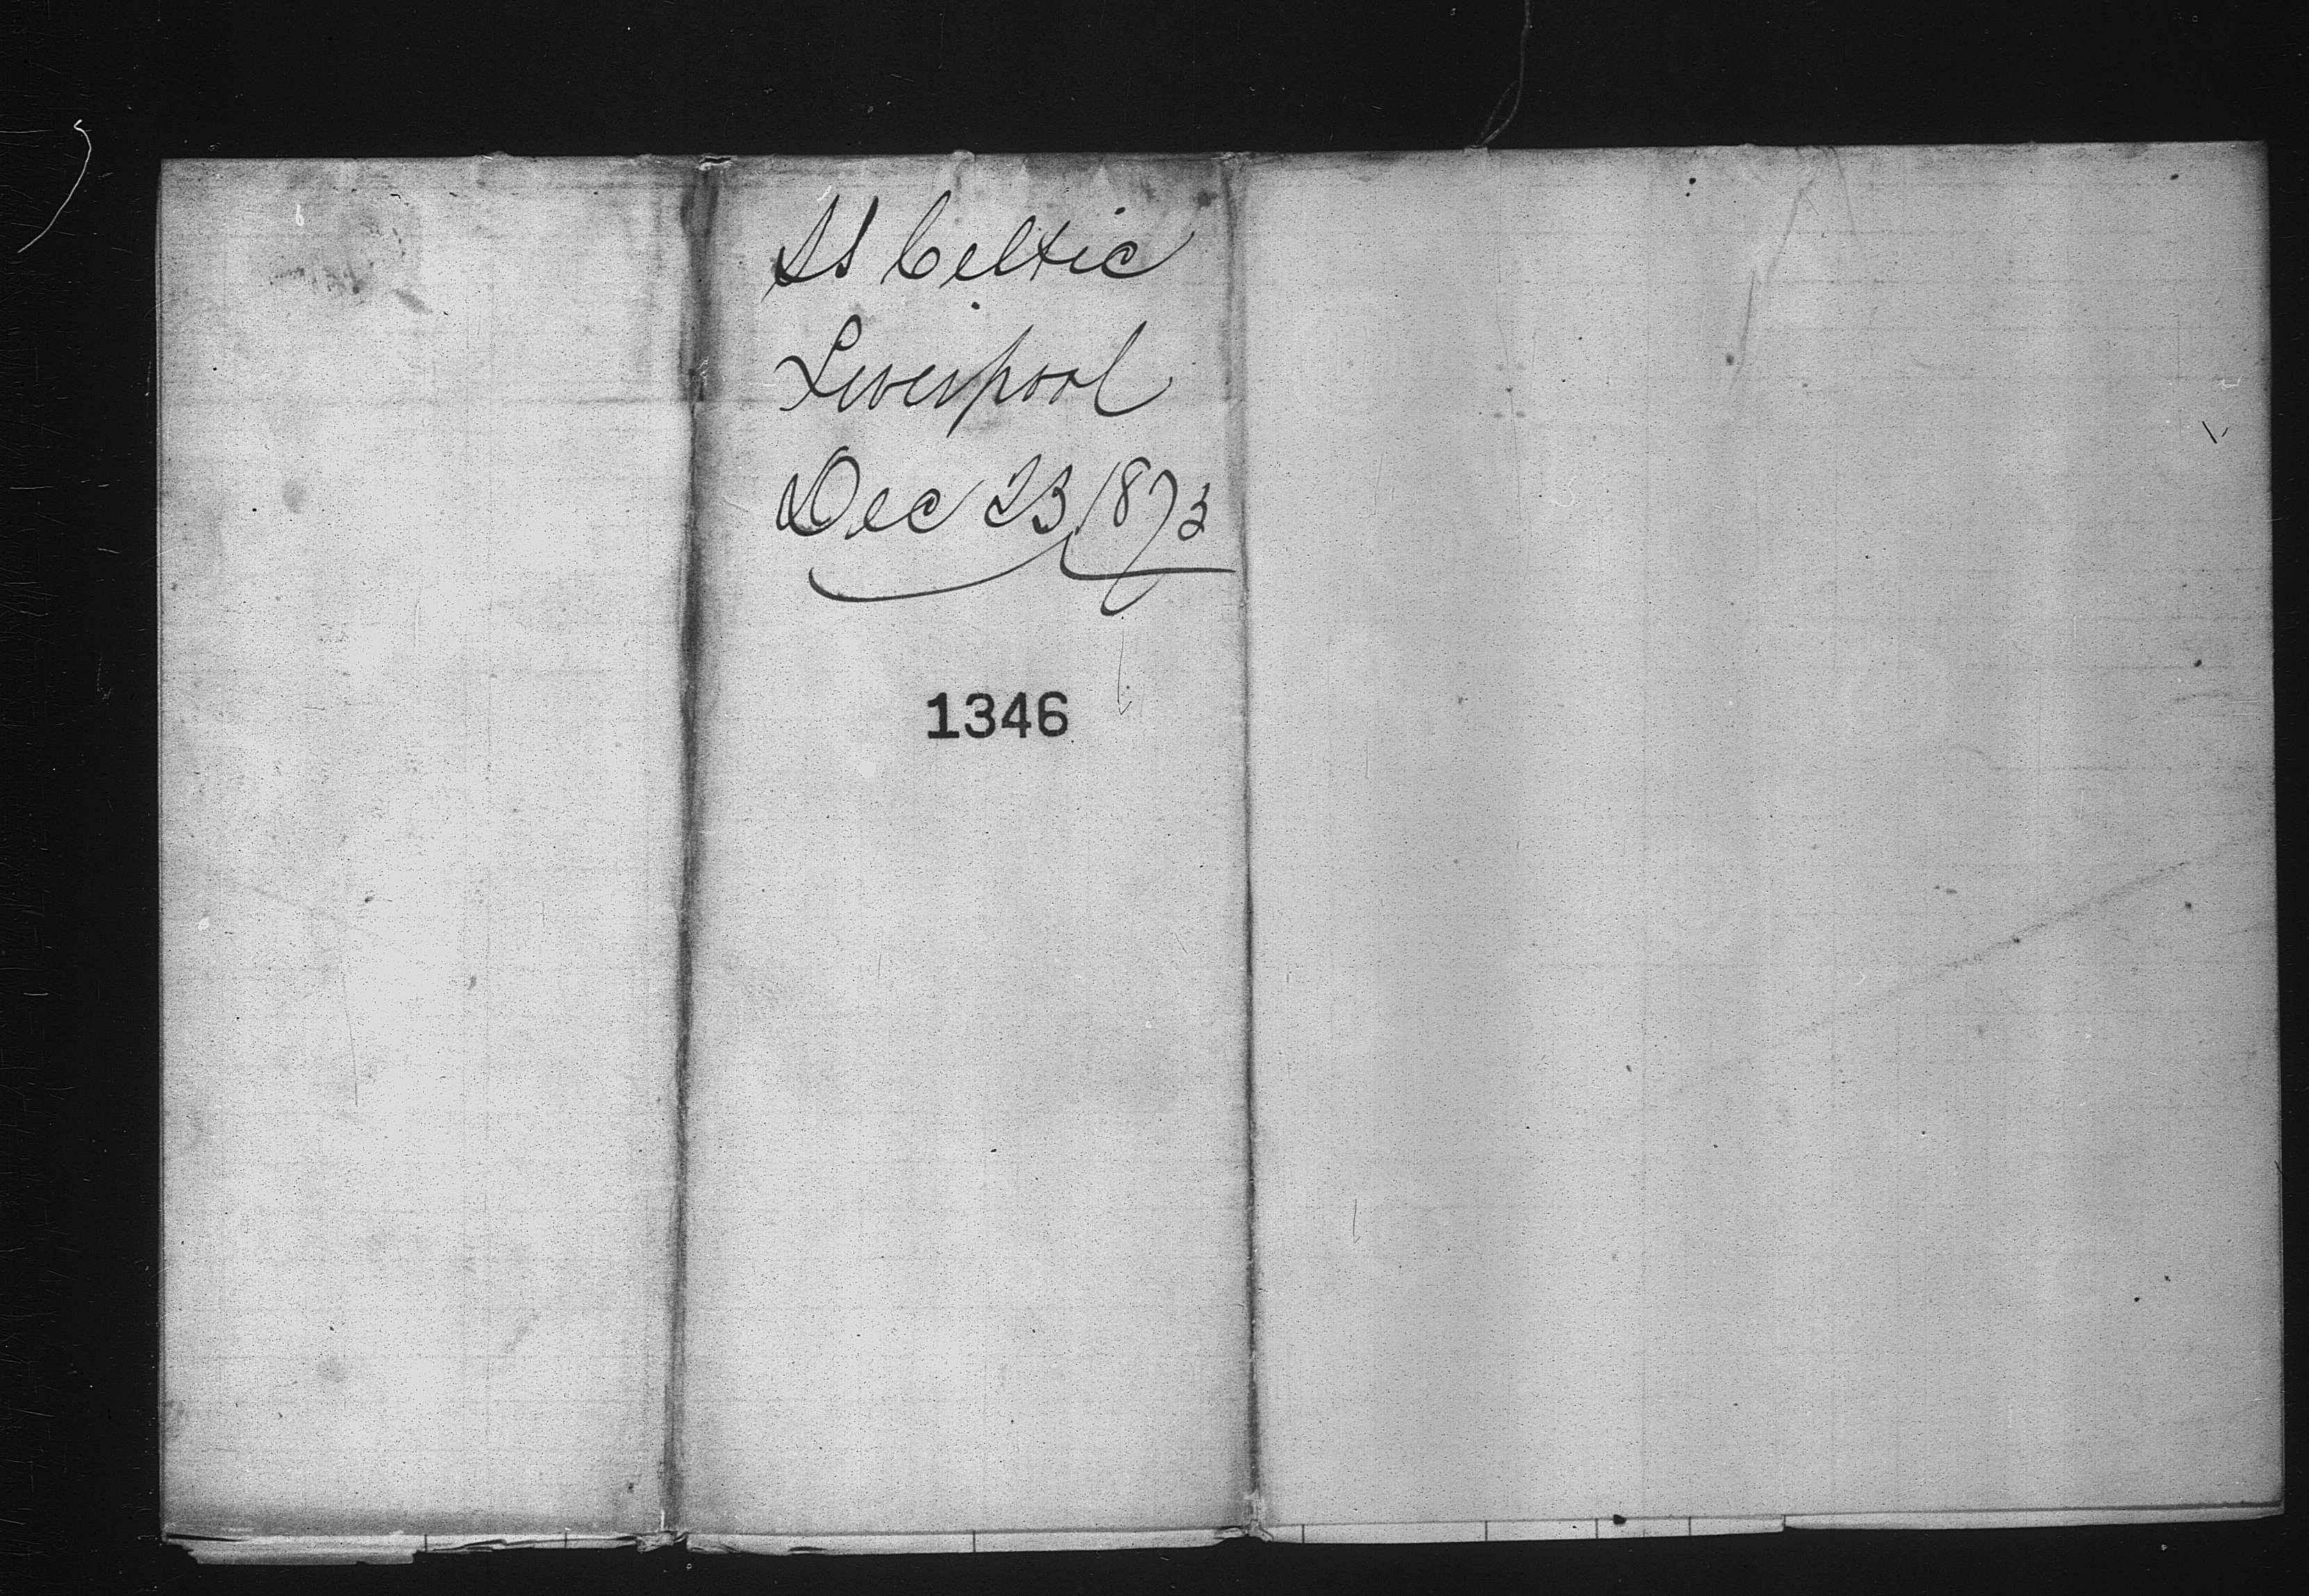 SS Celtic
Liverpool
Dec 23 1873
1346